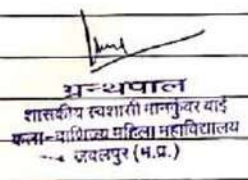 ग्रन्थपाल
शासकीय स्वशासी मानकुंवर बाई
कला-वाणिज्य महिला महाविद्यालय
जबलपुर (म.प्र.)